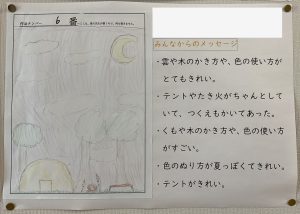 作品ナンバー 6 番
みんなからのメッセージ
・雲や木のかき方や、色の使い方が
とてもきれい。
・テントやたき火がちゃんとして
いて、つくえもかいてあった。
・くもや木のかき方や、色の使い方
がすごい。
・色のぬり方が夏っぽくてきれい。
・テントがきれい。